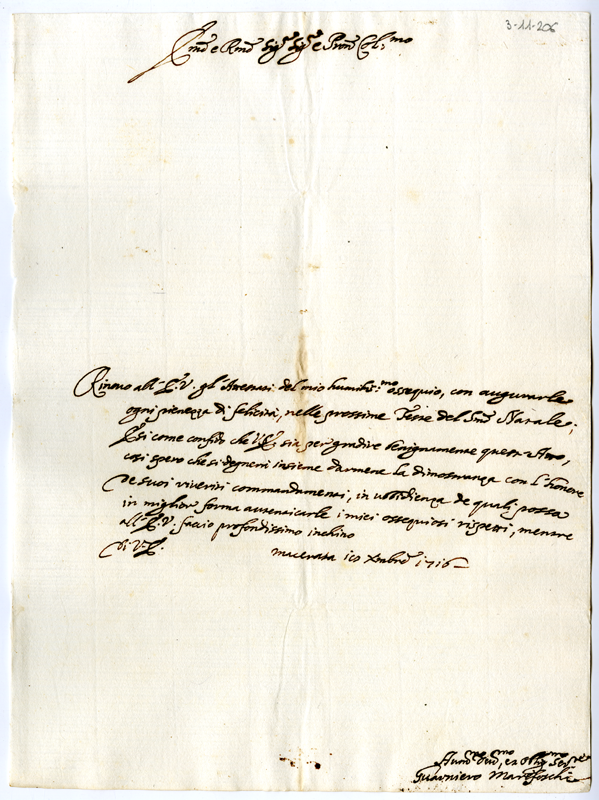 3-11-206
Em̃o e Rmõ Sigr Sigr e Prõn Col:mo
Rinovo all'E.V. gl'Attestati del mio humiliss:mo ossequio, con augurarle
ogni pienezza di felicità, nelle prossime Feste del Smõ Natale;
E si come confido che V.E. sia per gradire benignamente quest'Atto,
così spero che si degnerà insieme darmene la dimostranza con l'honore
de suoi riveriti commandamenti, in ubbidienza de quali possa
in miglior forma autenticarle i miei ossequiosi rispetti, mentre
all'E.V. faccio profondissimo inchino
Di V.E. Macerata Xmbrẽ 1716
Humo Devmo, et Obligmo Serre
Guarniero Marefoschi